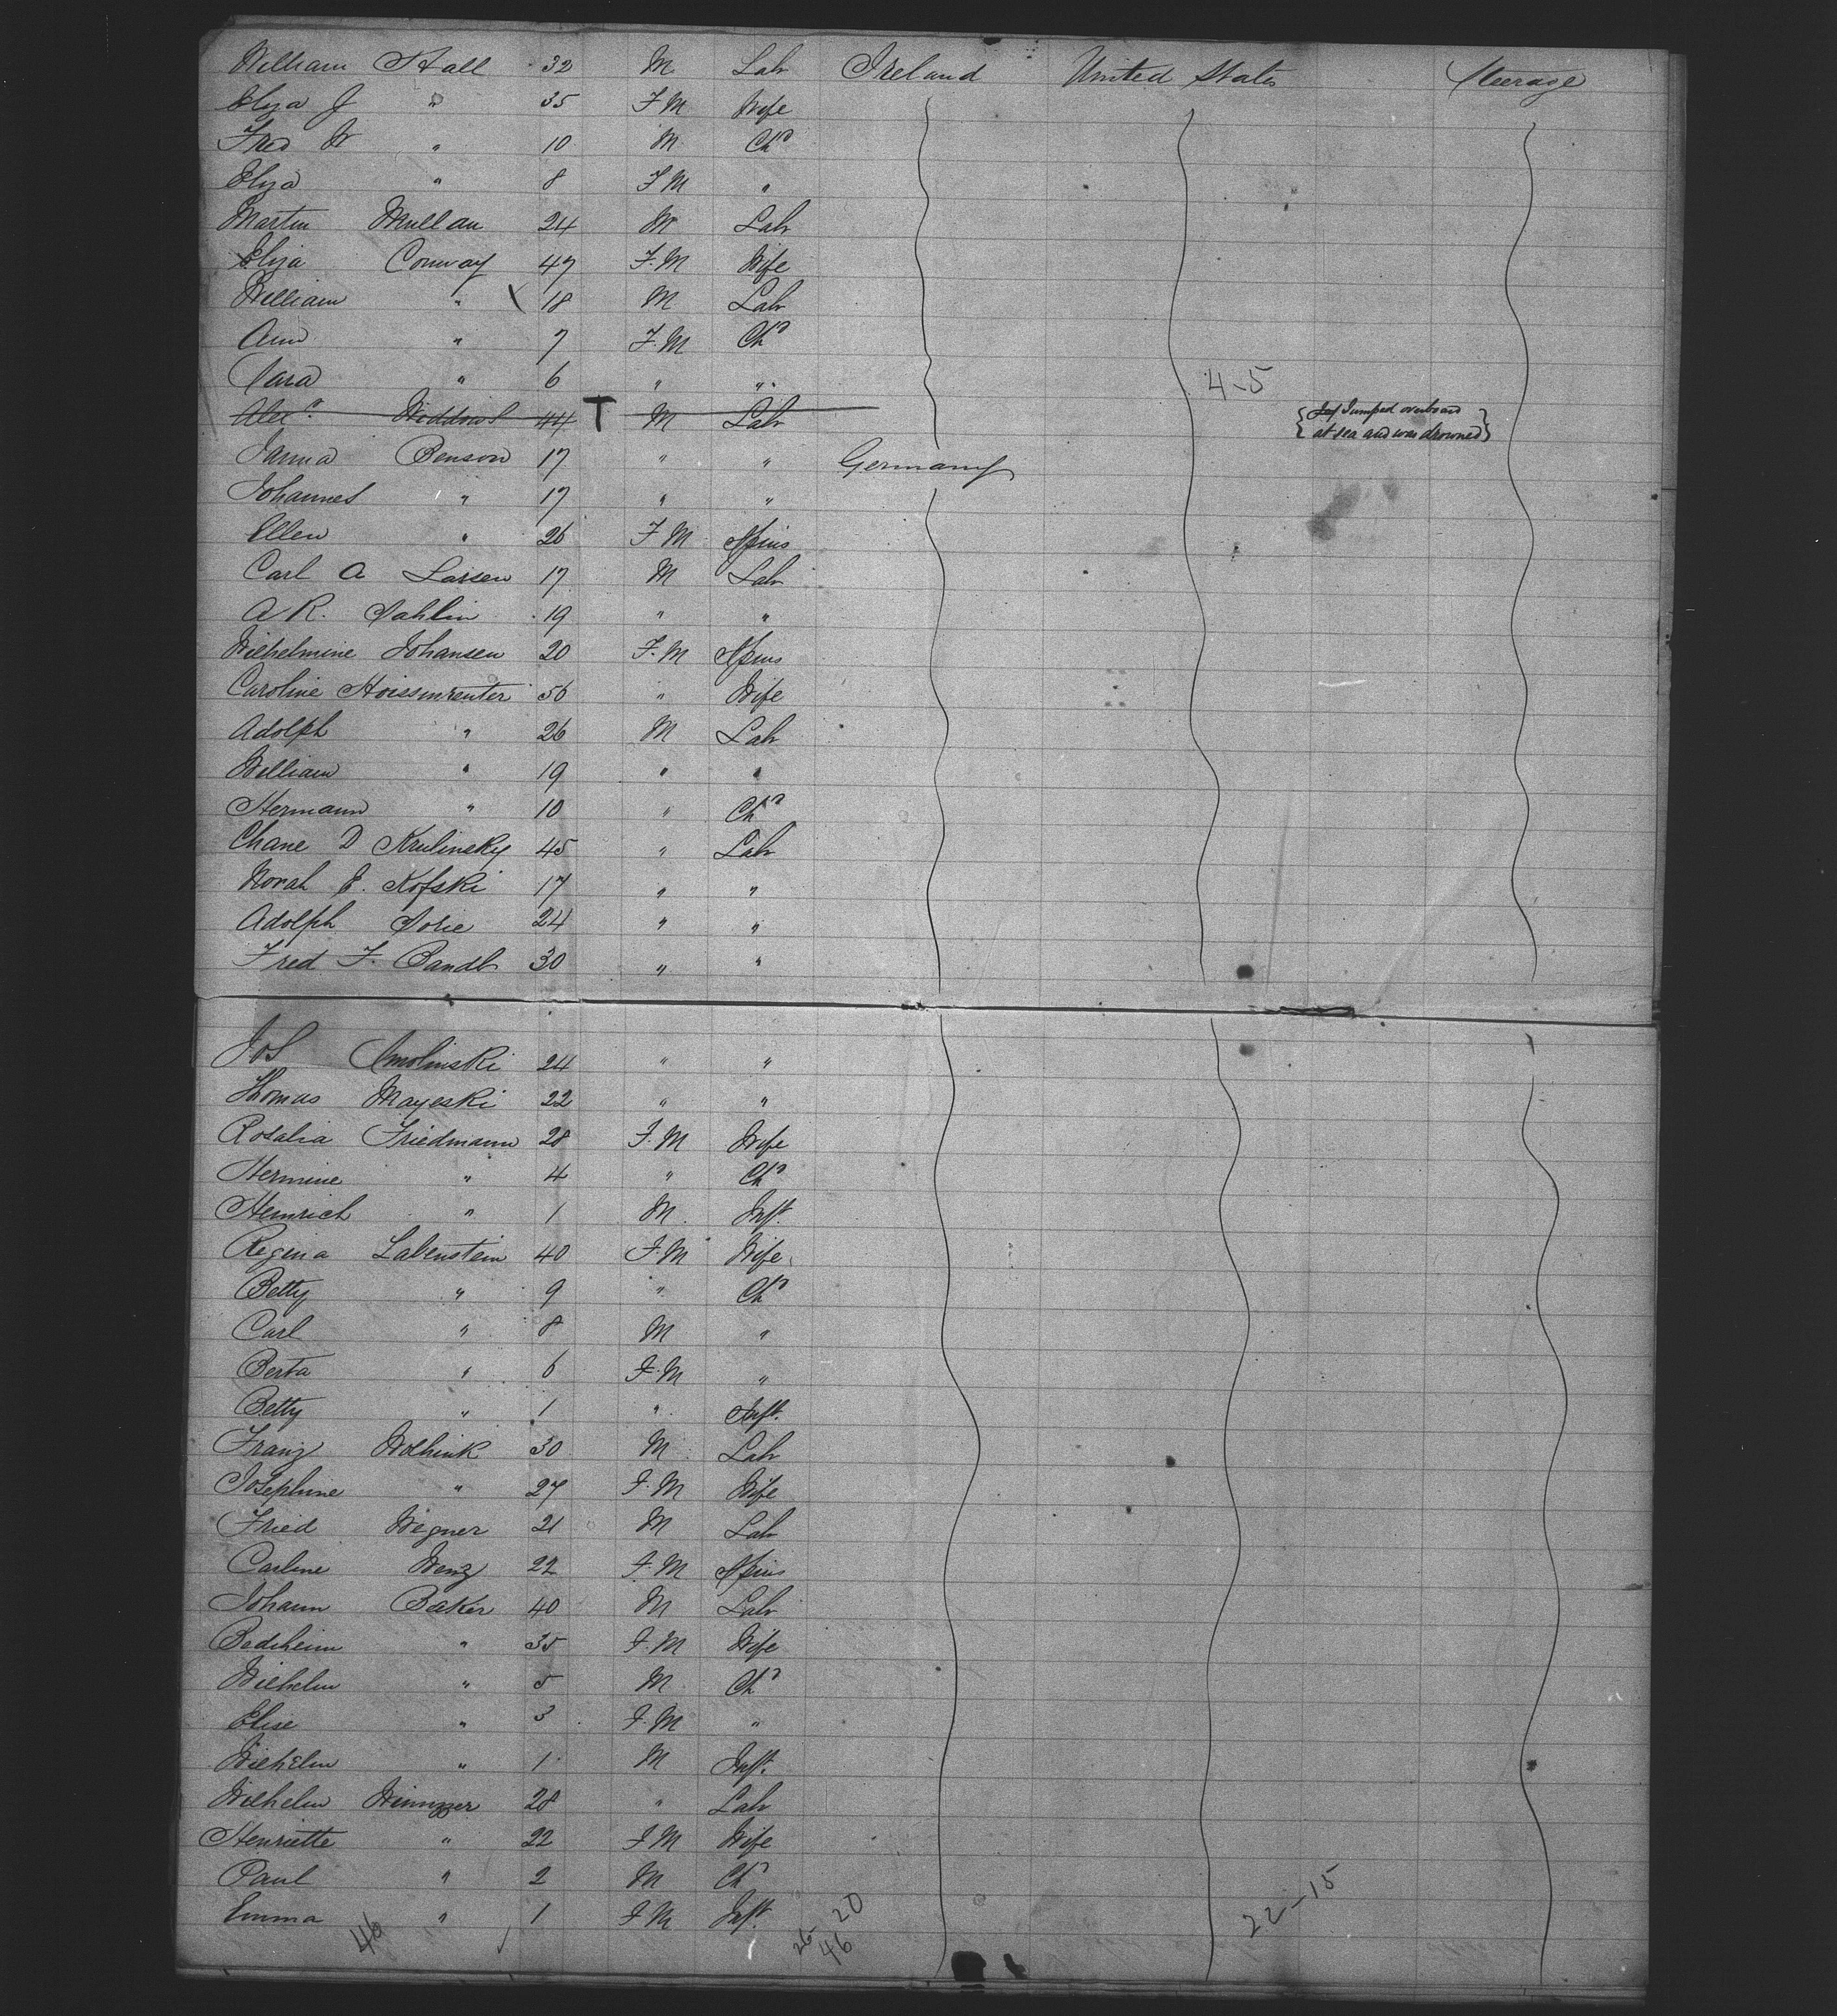 William Hall 32 M Labr Ireland United States Steerage
Eliza J " 35 F M Wife
Fred W " 10 M Chd
Eliza " 8 F M "
Martin Mullan 24 M Labr
Eliza Conway 47 F. M Wife
William " \ 18 M Labr
Ann " 7 F. M Chd
Sara " 6 " "
4-5
Alexr 44 T M Labr { Jumped overboard
at sea and was drowned }
Benson 17 " " Germany
Johannes " 17 " "
Ellen " 26 F M Spins
Carl A Larsen 17 M Labr
A R. Dahlin 19 " "
Wilhelmine Johansen 20 F. M Spins
Caroline Hoissenreuter 56 " Wife
Adolph " 26 M Labr
William " 19 " "
Hermann " 10 " Chd
Chane D Krulinsky 45 " Labr
Norah E. Kofski 17 " "
Adolph 24 " "
Fred F. Bandt 30 " "
Jos Smolinski 24 " "
Thomas Mayeski 22 " "
Rosalia Friedmann 28 F. M Wife
Hermine " 4 " Chd
Heinrich " 1 M. Inft.
Regina Labenstein 40 F. M Wife
Betty " 9 " Chd
Carl " 8 M "
Berta " 6 F. M "
Betty " 1 " Inft.
Franz 30 M Labr
Josephine " 27 F. M Wife
Fried Wegner 21 M Labr
Carline Wenz 22 F. M Spins
Johann Baker 40 M Labr
" 35 F. M Wife
Wilhelm " 5 M Chd
Elise " 3 F. M "
Wilhelm " 1 M Inft.
Wilhelm 28 " Labr
Henriette " 22 F M Wife
Paul " 2 M Chd
Emma " 1 F M Inft.
46 26-20 46 22-15